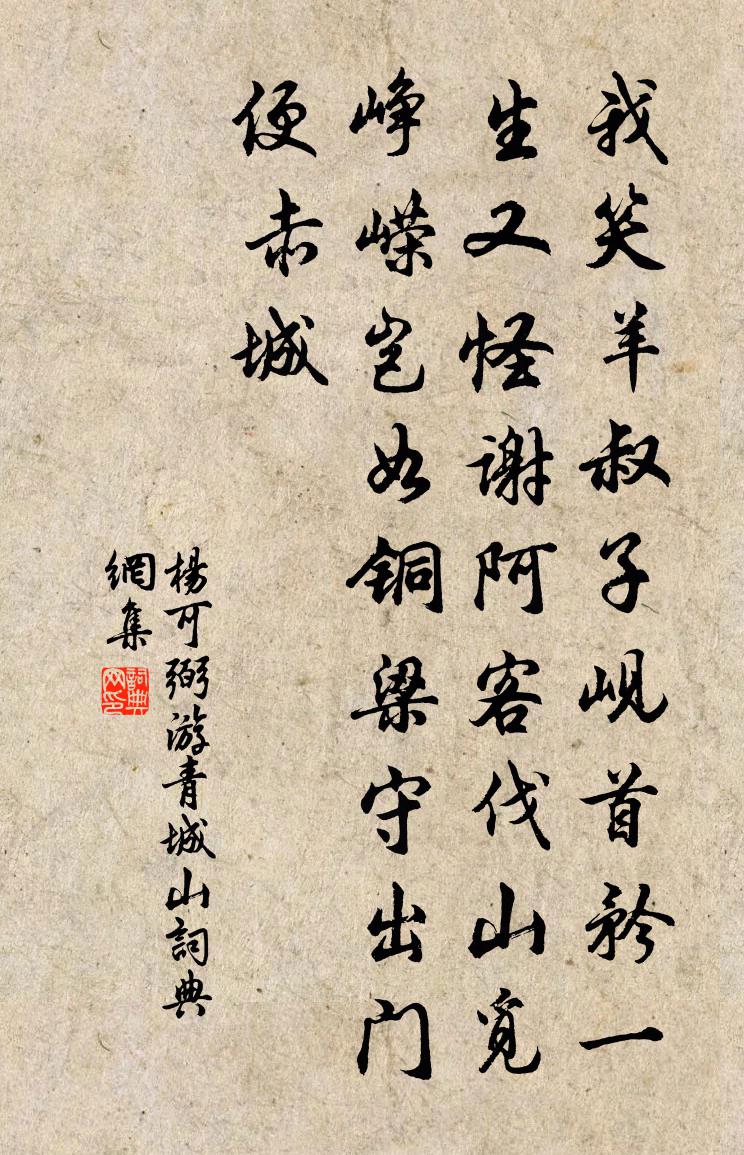 我笑羊叔子岘首矜一
生又怪谢阿客伐山觅
峥嵘岂如铜梁守出门
便赤城
杨可弼游青城山詞典
網集
詞典网印